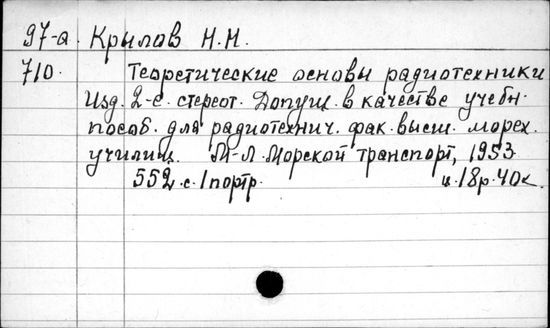 97-а. Крылов Н.Н.
710. Теоретические основы радиотехники
Изд. 2-е. стереот. Допущ. в качестве учебн.
пособ. для радиотехнич. фак. высш. морех.
училищ. М-Л. Морской транспорт, 1953.
552 с. 1 портр. ц. 18р. 40к.